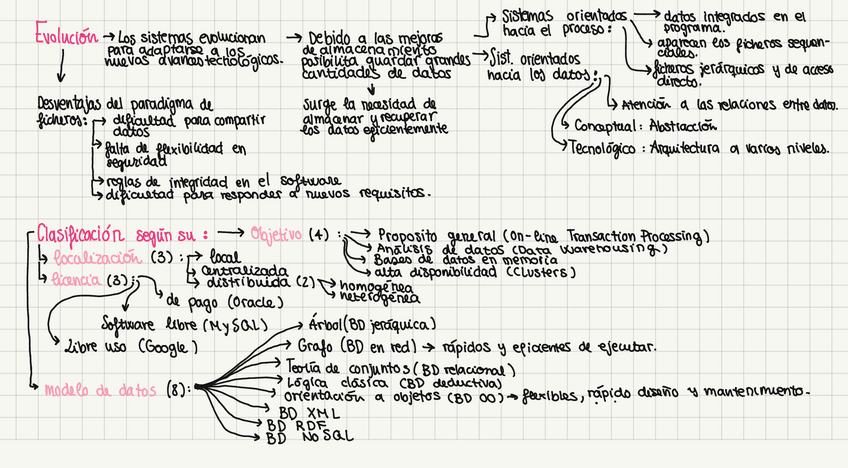 Evolución → Los sistemas evolucionan
para adaptarse a los
nuevos avances tecnológicos.
→ Debido a las mejoras
de almacenamiento
posibilita guardar grandes
cantidades de datos
Surge la necesidad de
almacenar y recuperar
los datos eficientemente
Sistemas orientados
hacia el proceso:
→ datos integrados en el
programa.
aparecen los ficheros sequen-
ciales.
ficheros jerárquicos y de acceso
directo.
→ Sist. orientados
hacia los datos:
Atención a las relaciones entre datos.
Conceptual: Abstracción
Tecnológico: Arquitectura a varios niveles.
Desventajas del paradigma de
ficheros: → dificultad para compartir
datos
falta de flexibilidad en
seguridad
→ reglas de integridad en el software
→ dificultad para responder a nuevos requisitos.
Clasificación según su: → Objetivo (4):
→ Proposito general (On-line Transaction Processing)
Análisis de datos (Data Warehousing)
Bases de datos en memoria
alta disponibilidad (Clusters)
→ localización (3): → local
→ Centralizada
→ distribuida (2) → homogénea
heterogénea
→ licencia (3):
de pago (Oracle)
Software libre (MySQL)
Libre uso (Google)
modelo de datos (8):
Árbol (BD jeráquica)
Grafo (BD en red) → rápidos y eficientes de ejecutar.
Teoría de conjuntos (BD relacional)
Lógica clásica (BD deductiva)
Orientación a objetos (BD OO) → flexibles, rápido diseño y mantenimiento.
BD XML
BD RDF
BD NoSQL